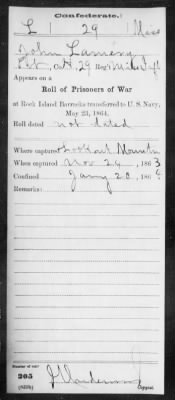 Confederate.
L | 29 | Miss
John Lamery
Pvt, Co H, 29 Reg't Miss Inf
Appears on a
Roll of Prisoners of War
at Rock Island Barracks transferred to U. S. Navy,
May 23, 1864.
Roll dated not dated
Where captured Lookout Mountn
When captured Nov 24, 1863
Confined Jany 20, 186
Remarks:
Number of roll:
205
Copyist.